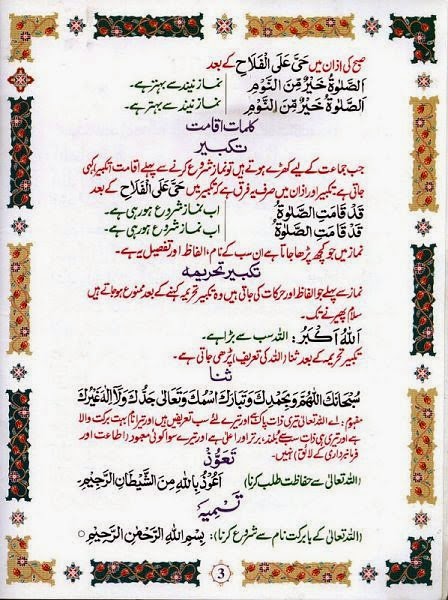 صبح کی اذان میں حَیَّ عَلَی الْفَلَاحِ کے بعد
اَلصَّلٰوةُ خَیْرٌ مِّنَ النَّوْمِ نماز نیند سے بہتر ہے۔
اَلصَّلٰوةُ خَیْرٌ مِّنَ النَّوْمِ نماز نیند سے بہتر ہے۔
کلمات اقامت
تکبیر
جب جماعت کے لیے کھڑے ہوتے ہیں تو نماز شروع کرنے سے پہلے اقامت (تکبیر) کہی
جاتی ہے۔ تکبیر اور اذان میں صرف یہ فرق ہے کہ تکبیر میں حَیَّ عَلَی الْفَلَاحِ کے بعد
قَدْ قَامَتِ الصَّلٰوةُ اب نماز شروع ہو رہی ہے۔
قَدْ قَامَتِ الصَّلٰوةُ اب نماز شروع ہو رہی ہے۔
نماز میں جو کچھ پڑھا جاتا ہے ان سب کے نام، الفاظ اور تفصیل یہ ہے۔
تکبیر تحریمہ
نماز سے پہلے جو الفاظ اور حرکات کی جاتی ہیں وہ تکبیر تحریمہ کہنے کے بعد ممنوع ہو جاتے ہیں
سلام پھیرنے تک۔
اَللّٰهُ اَکْبَرُ: اللہ سب سے بڑا ہے۔
تکبیر تحریمہ کے بعد ثنا (اللہ کی تعریف) پڑھی جاتی ہے۔
ثنا
سُبْحَانَكَ اللّٰهُمَّ وَبِحَمْدِكَ وَتَبَارَكَ اسْمُكَ وَتَعَالٰی جَدُّكَ وَلَاۤ اِلٰهَ غَیْرُكَ
مفہوم: اے اللہ تعالیٰ تیری ذات پاک ہے اور تیرے لئے سب تعریفیں ہیں اور تیرا نام بہت برکت والا
ہے اور تیری ہی ذات سب سے بلند، برتر اور اعلیٰ ہے اور تیرے سوا کوئی معبود (اطاعت اور
فرمانبرداری کے لائق) نہیں۔
تَعَوُّذ
(اللہ تعالیٰ سے حفاظت طلب کرنا) اَعُوْذُ بِاللّٰهِ مِنَ الشَّیْطَانِ الرَّجِیْمِ۔
تَسْمِیَہ
(اللہ تعالیٰ کے بابرکت نام سے شروع کرنا): بِسْمِ اللّٰهِ الرَّحْمٰنِ الرَّحِیْمِ
3